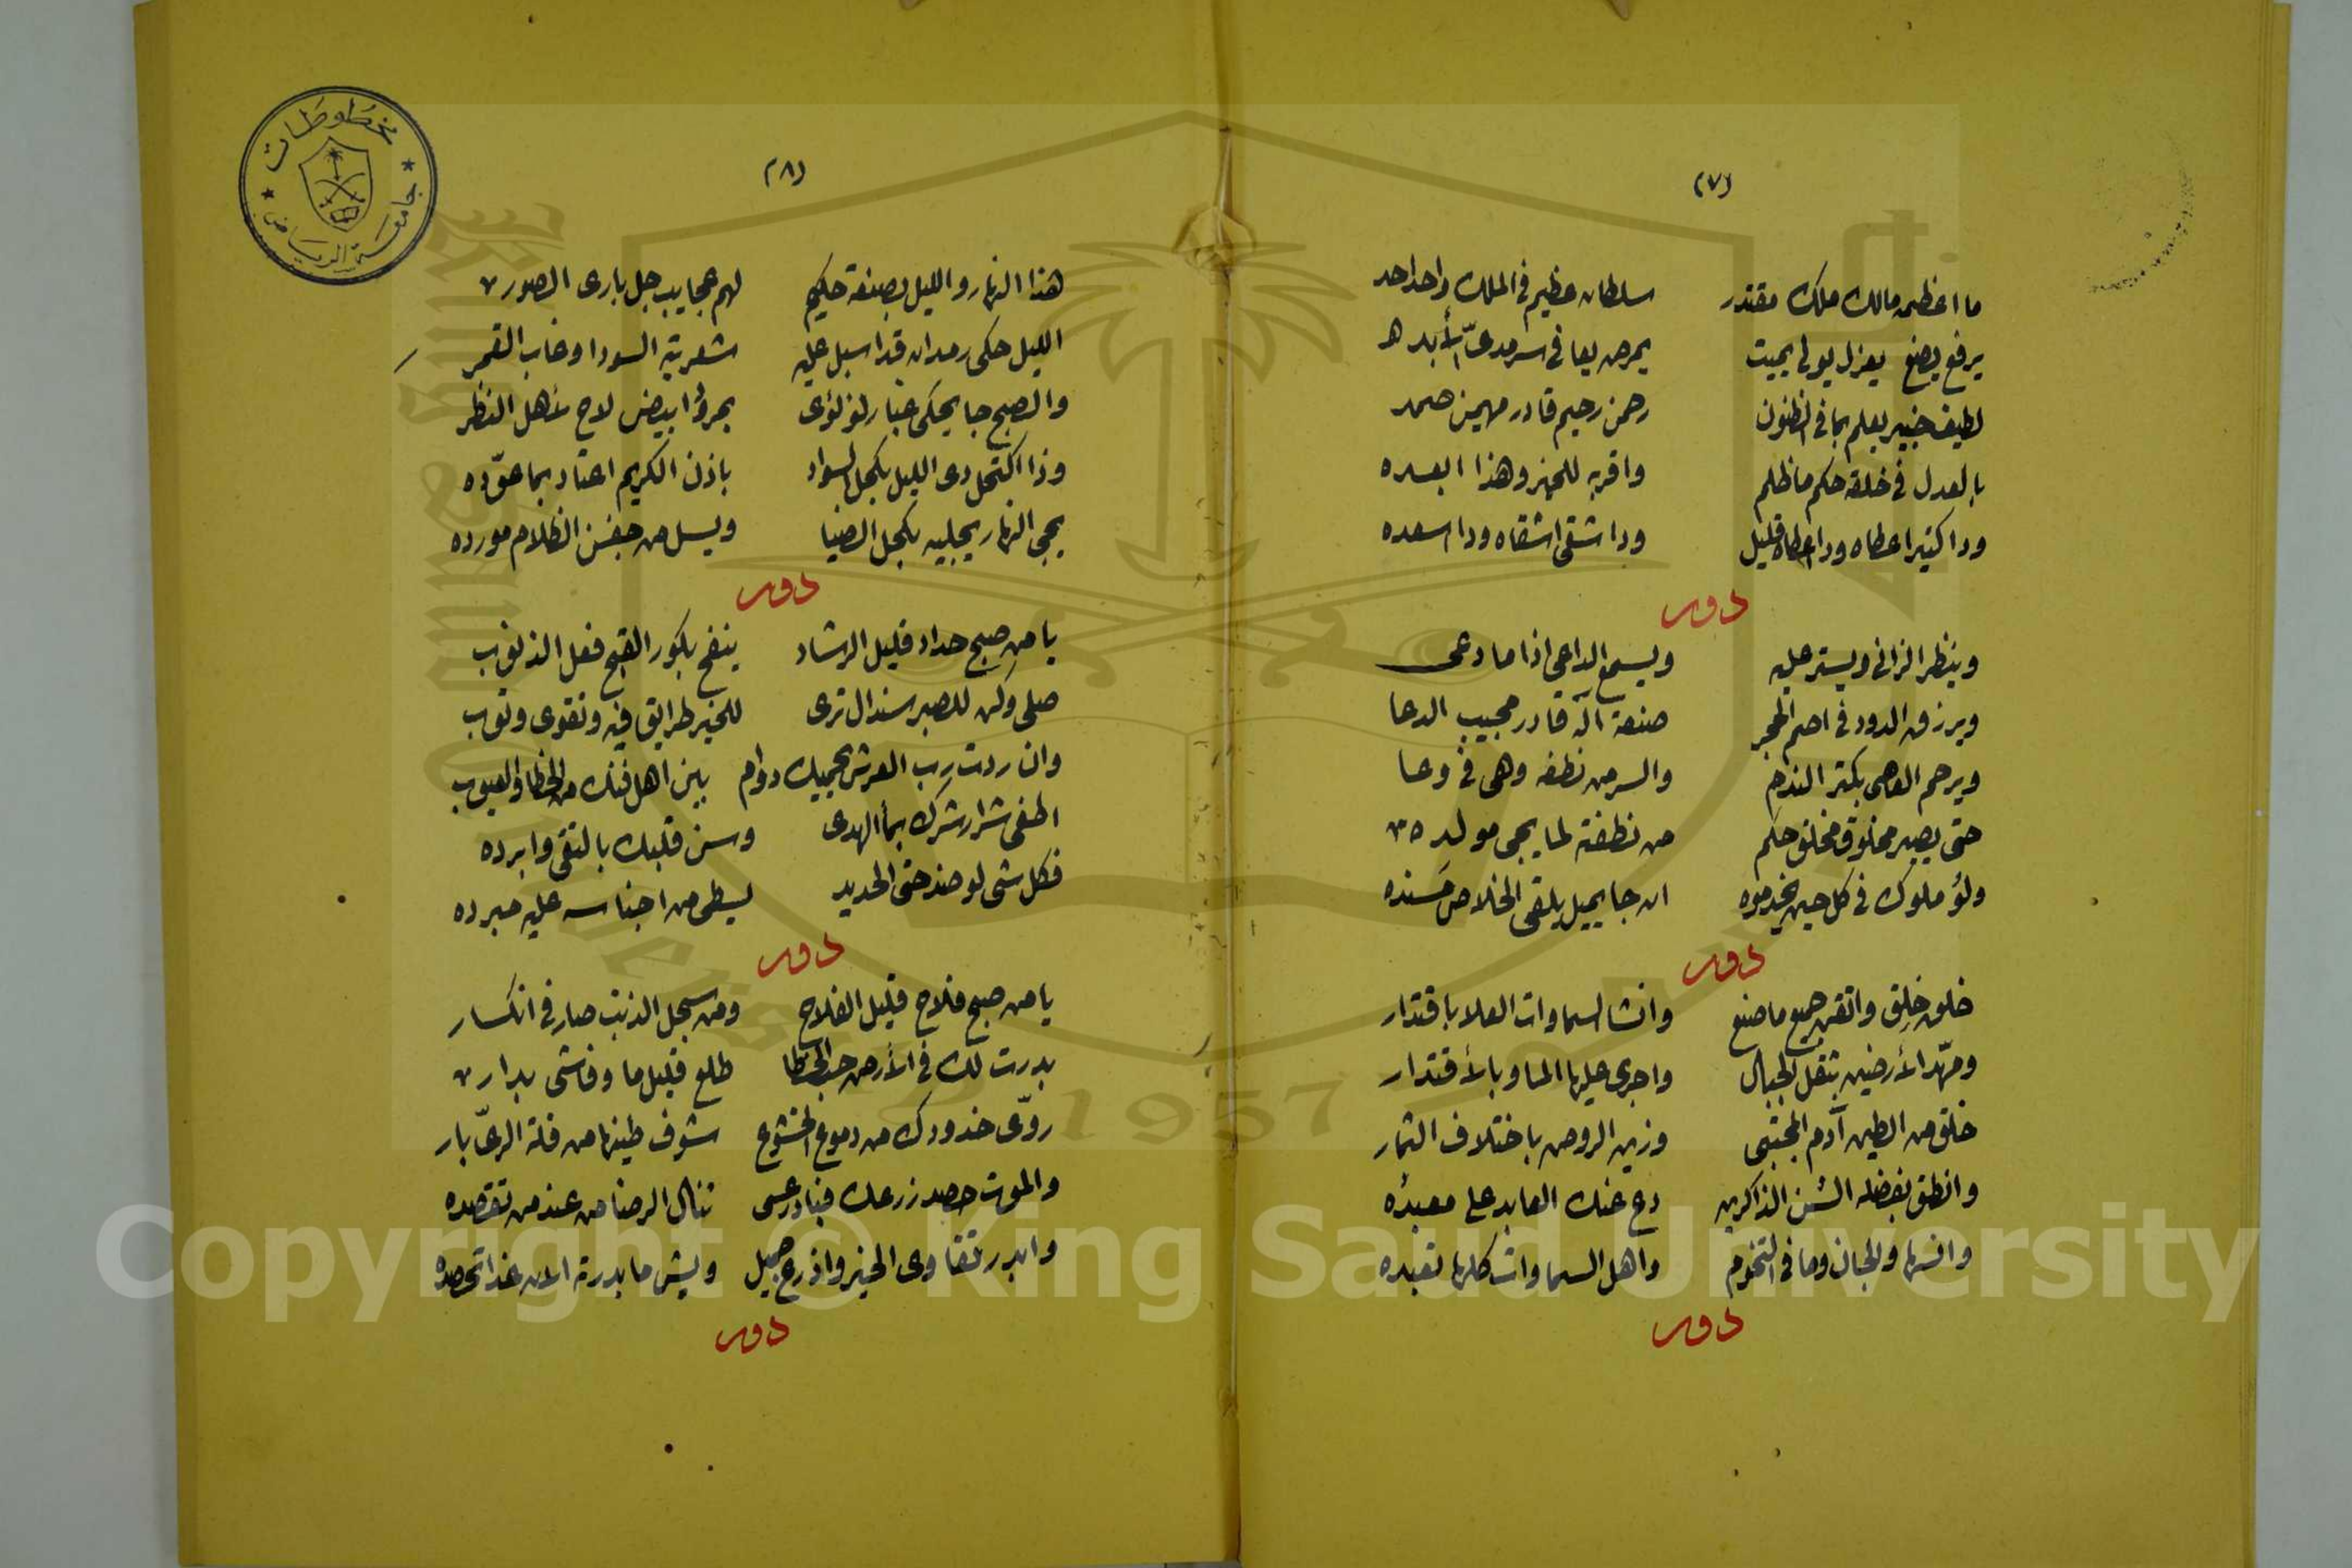 (٧)
ما اعظمه مالك ملك مقتدر سلطان عظيم في الملك واحد احد
يرفع يضع يعزل يولى يميت يمرض يعافى سرمدىّ الأبد
لطيف خبير يعلم بما في الظنون رحمن رحيم قادر مهيمن صمد
بالعدل في خلقه حكم ما ظلم واقربه للخير وهذا ابعده
ودا كتير اعطاه ودا اعطاه قليل ودا شقى اشقاه ودا اسعده
دور
وينظر الزانى ويستر عليه ويسمع الداعى اذا ما دعى
ويرزق الدود في اصم الحجر صنعة آله قادر مجيب الدعا
ويرحم العاصى بكتر الندم والسر من نطفه وهى في وعا
حتى يصير مخلوق مخلق حكم من نطفته لما يجى مولده
ولؤ ملوك في كل حين يخدموه ان جا يميل يلقى الخلاص سنده
دور
خلق خلق واتقن جميع ما صنع وانشا السماوات العلا باقتدار
ومهّد الأرضين بثقل الجبال واجرى عليها الما وبالأقتدار
خلق من الطين آدم المجتبى وزين الروض باختلاف الثمار
وانطق بفضله السن الذاكرين دع عنك العابد على معبده
وانسها والجان وما في التخوم واهل السماوات كلها تعبده
دور
(٨)
هذا النهار والليل بصنعة حكيم لهم عجايب جل بارى الصور
الليل حكى رمدان قد اسبل عليه شعريته السودا وغاب القمر
والصبح جا يحكى غبار لؤلؤى بمرؤ ابيض لاح لأهل النظر
وذا اكتحل دى الليل بكحل السواد باذن الكريم اعتاد بما عوّده
يجى النهار يجليه بكحل الضيا ويسل من جفن الظلام مورده
دور
يا من صبح حداد قليل الرشاد ينفخ بكور القبح فعل الذنوب
صلى وكن للصبر سندال ترى للخير طرايق فيه وتقوى وتوب
وان ردت رب العرش يحميك دوام بين اهل فنك من الخطا والعيوب
اطفى شرار شرك بمأ الهدى وسن قلبك بالتقى وابرده
فكل شى لو ضد حتى الحديد يسطى من اجناسه عليه مبرده
دور
يا من صبح فلاح قليل الفلاح ومن سجل الذنب صار في انكسار
بدرت لك في الأرض حب الخطا طلع قليل ما وفاشى بدار
روّى خدودك من دموع الخشوع شوف طينها من قلة الرىّ بار
والموت حصد زرعك فبادر عسى تنال الرضا من عند من تقصده
وابدر تقاوى الخير وازرع جميل ويش ما بدرته الان غدا تحصده
دور
مخطوطات
جامعة الرياض
King Saud University
1957
Copyright © King Saud University